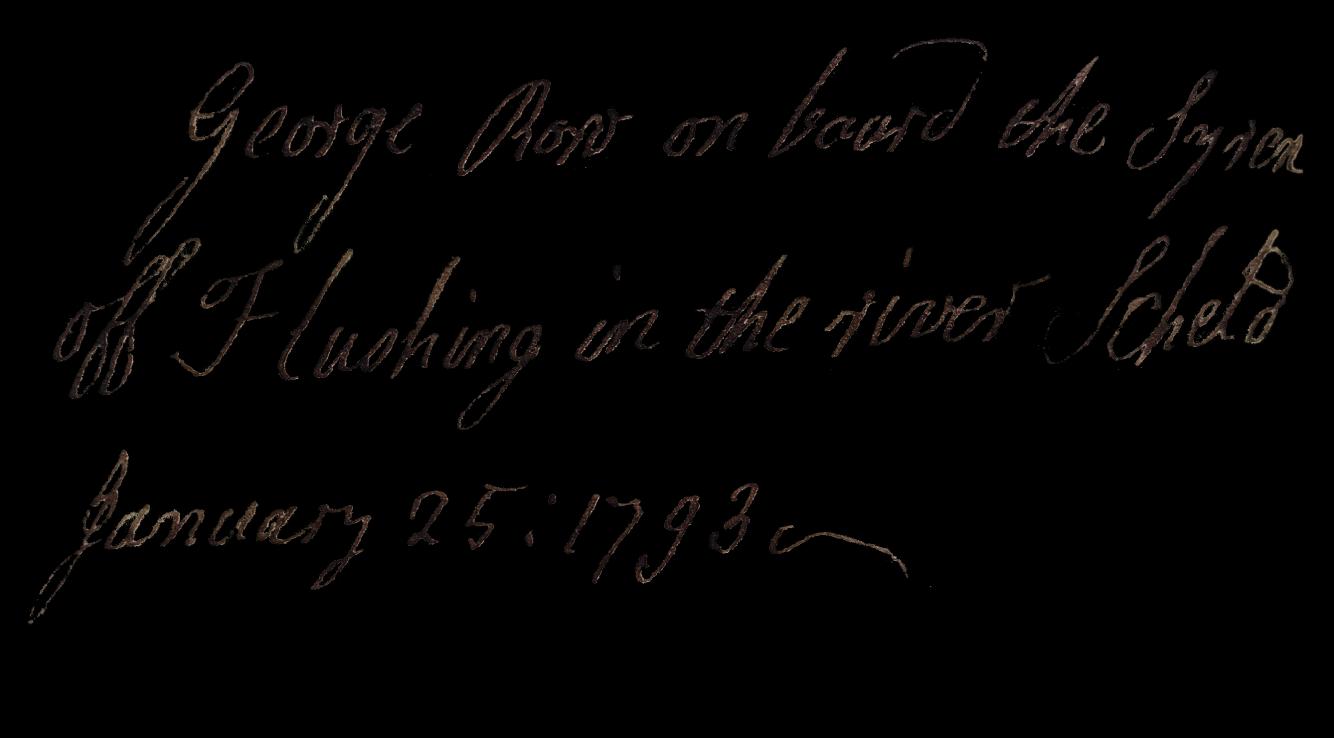 George Row on baard the Syren
off Flushing in the river Scheld
January 25:1793